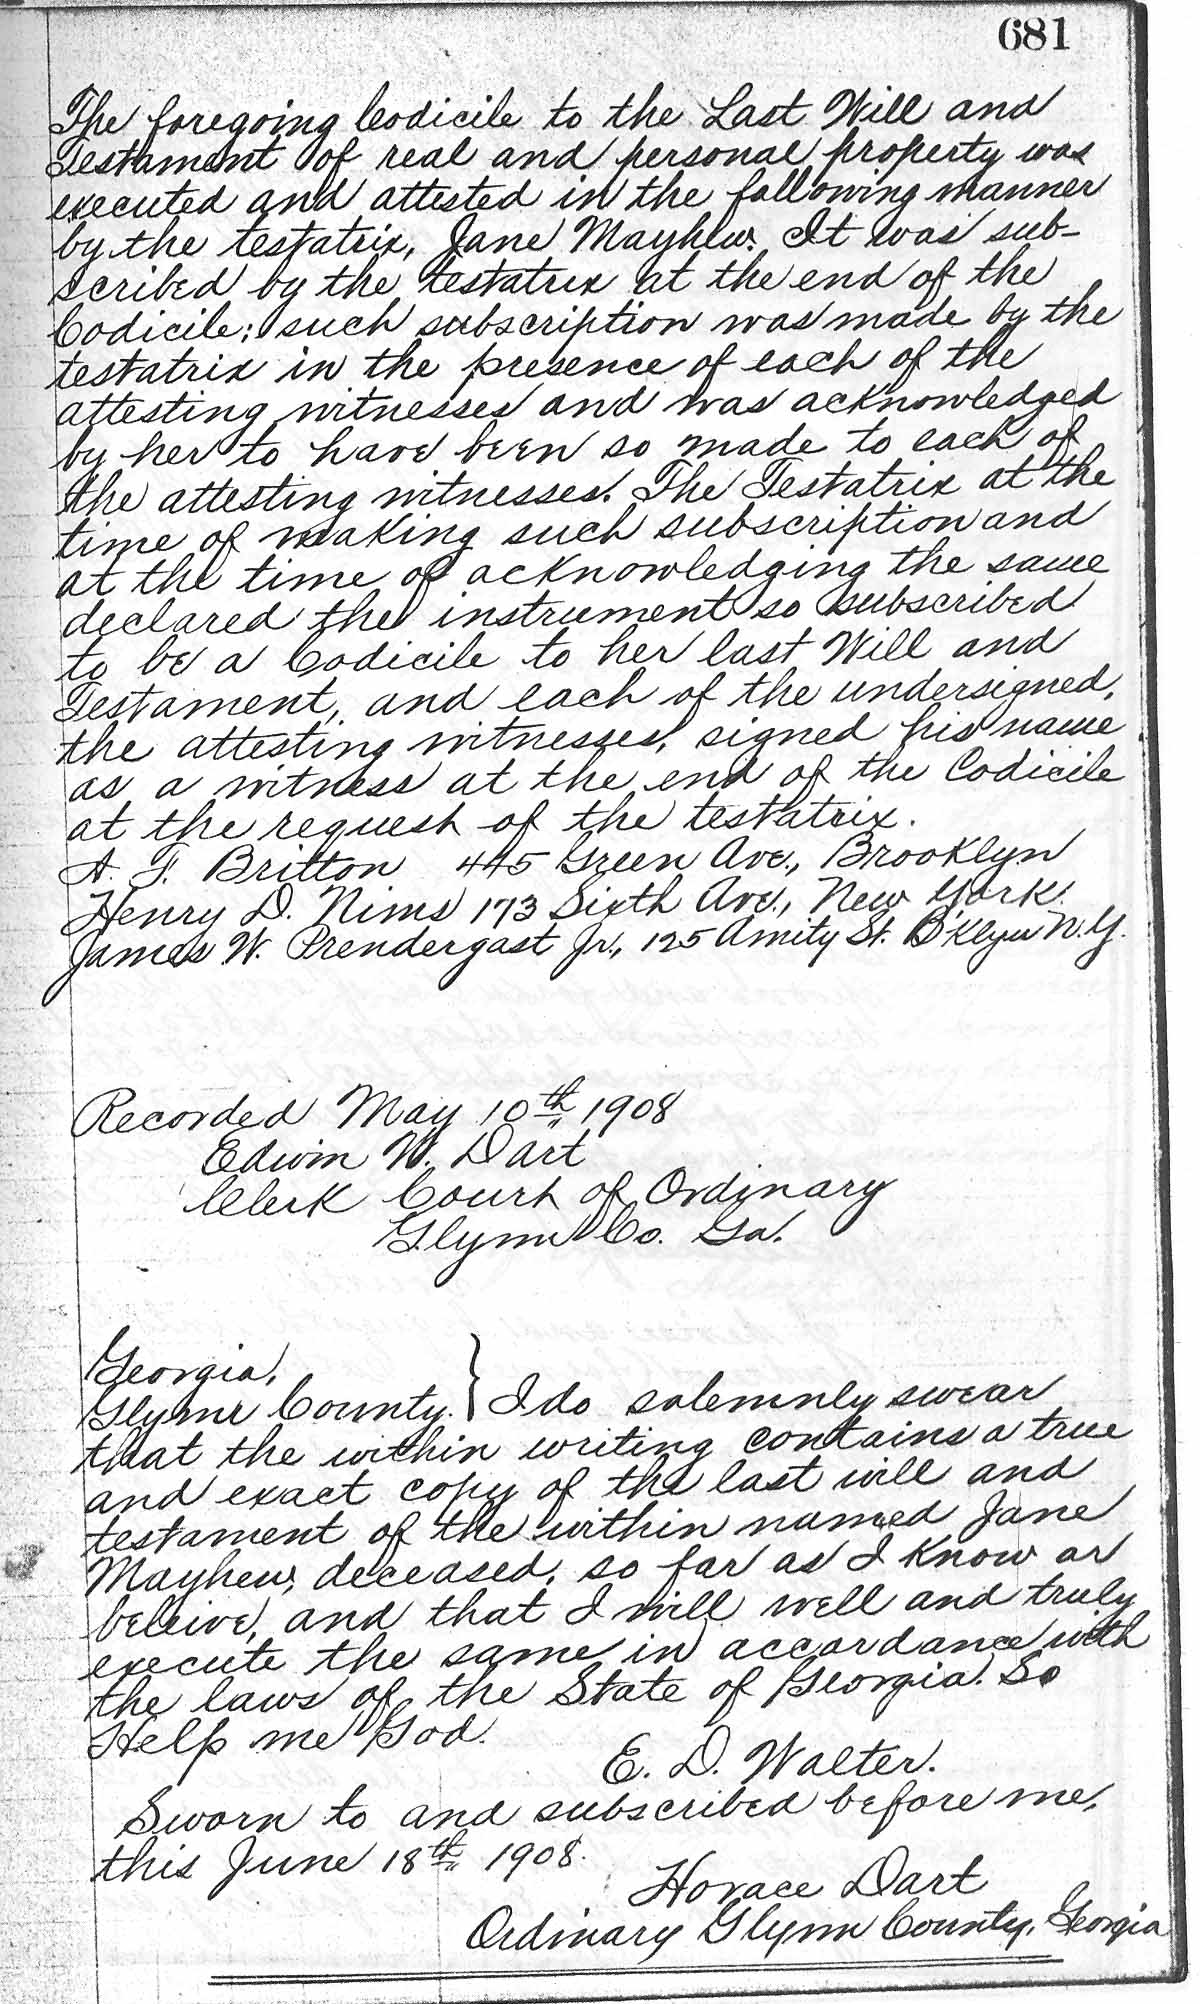 681
The foregoing Codicile to the Last Will and
Testament of real and personal property was
executed and attested in the following manner
by the testatrix, Jane Mayhew. It was sub-
scribed by the testatrix at the end of the
Codicile; such subscription was made by the
testatrix in the presence of each of the
attesting witnesses and was acknowledged
by her to have been so made to each of
the attesting witnesses. The Testatrix at the
time of making such subscription and
at the time of acknowledging the same
declared the instrument so subscribed
to be a Codicile to her last Will and
Testament, and each of the undersigned,
the attesting witnesses, signed his name
as a witness at the end of the Codicile
at the request of the testatrix.
A. F. Britton 445 Green Ave., Brooklyn
Henry D. Nims 173 Sixth Ave., New York.
James W. Prendergast Jr., 125 Amity St. B'klyn N.Y.
Recorded May 10th 1908
Edwin W. Dart
Clerk Court of Ordinary
Glynn Co. Ga.
Georgia,
Glynn County. } I do solemnly swear
that the within writing contains a true
and exact copy of the last will and
testament of the within named Jane
Mayhew, deceased, so far as I know or
beleive, and that I will well and truly
execute the same in accordance with
the laws of the State of Georgia. So
Help me God.
E. D. Walter.
Sworn to and subscribed before me,
this June 18th 1908.
Horace Dart
Ordinary Glynn County, Georgia